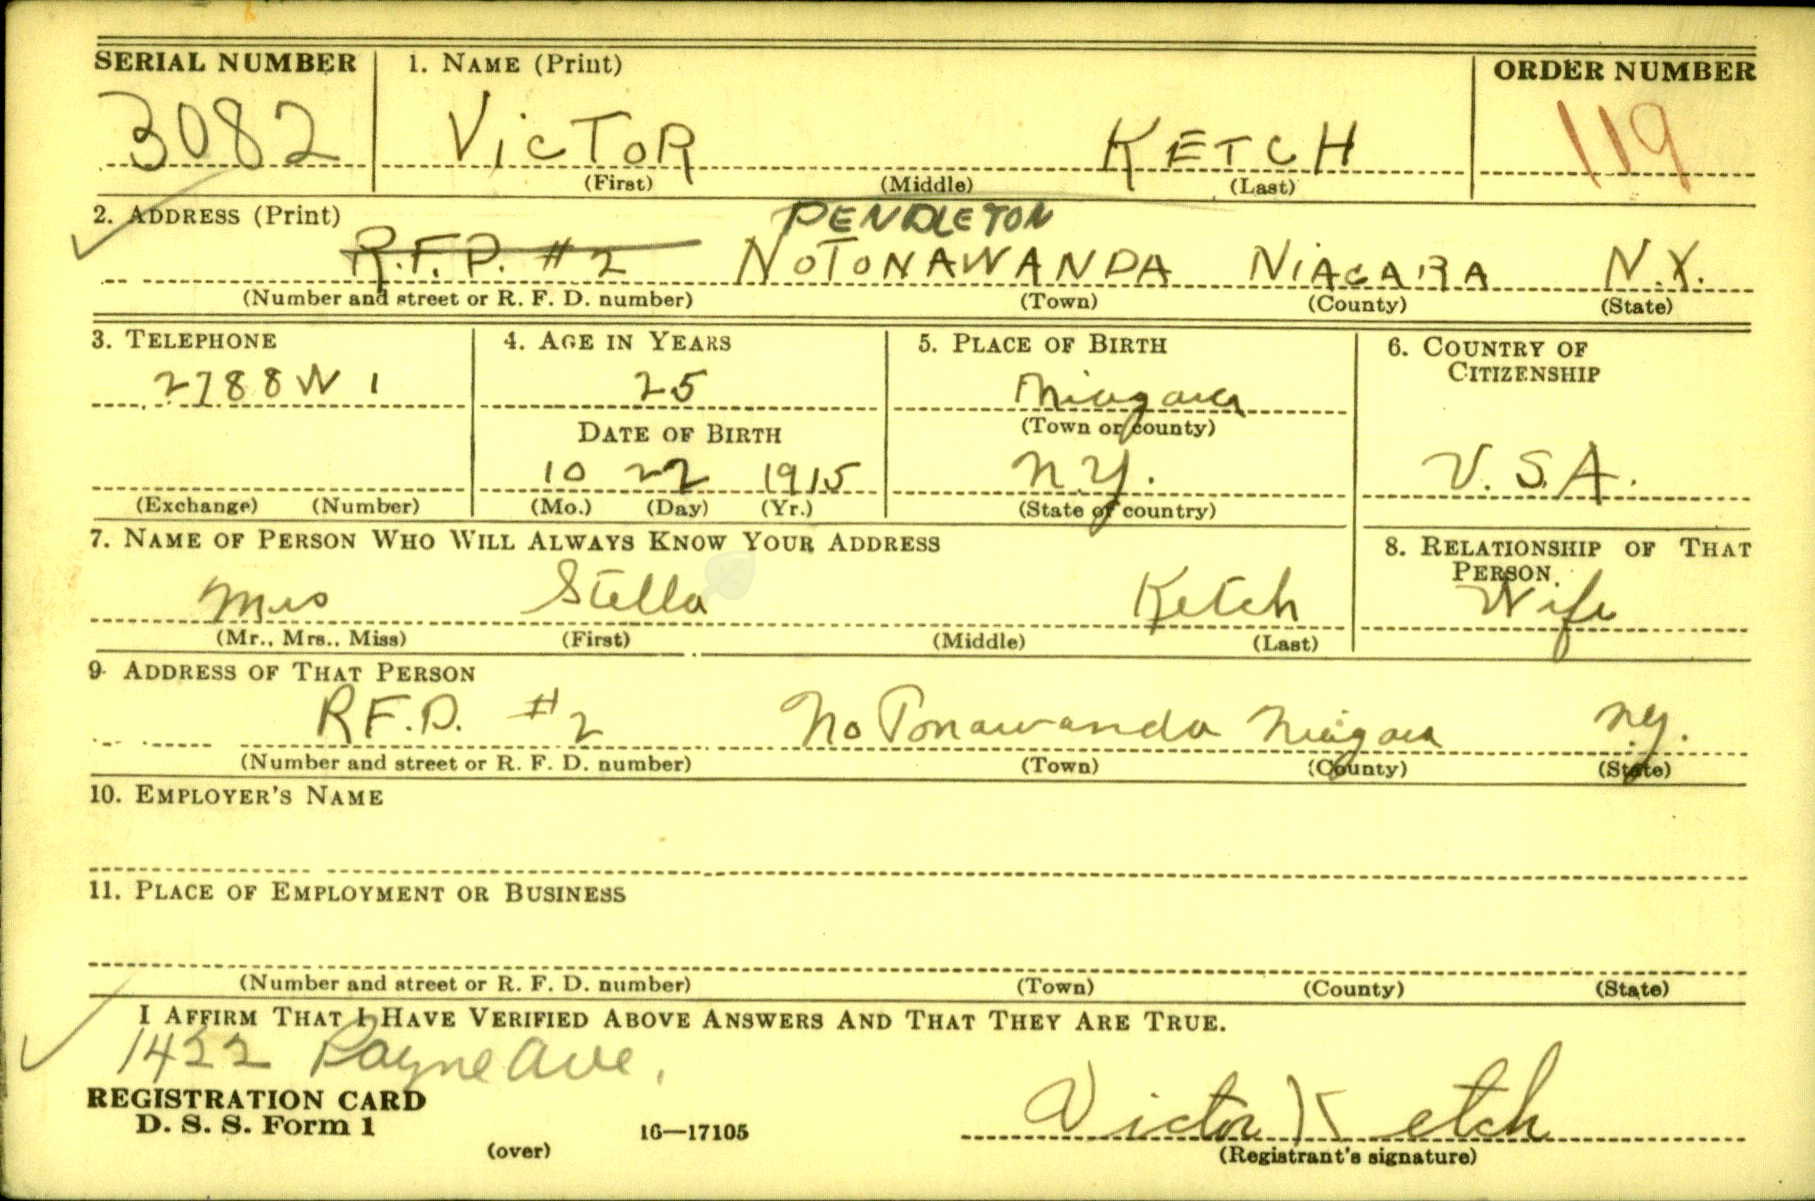 SERIAL NUMBER 1. NAME (Print) ORDER NUMBER
3082 VICTOR KETCH 119
(First) (Middle) (Last)
2. ADDRESS (Print)
PENDLETON
R.F.D. #2 NO TONAWANDA NIAGARA N.Y.
(Number and street or R. F. D. number) (Town) (County) (State)
3. TELEPHONE 4. AGE IN YEARS 5. PLACE OF BIRTH 6. COUNTRY OF CITIZENSHIP
2788W1 25 Niagara
DATE OF BIRTH (Town or county)
10 22 1915 N.Y. U.S.A.
(Exchange) (Number) (Mo.) (Day) (Yr.) (State or country)
7. NAME OF PERSON WHO WILL ALWAYS KNOW YOUR ADDRESS 8. RELATIONSHIP OF THAT PERSON
Mrs Stella Ketch Wife
(Mr., Mrs., Miss) (First) (Middle) (Last)
9. ADDRESS OF THAT PERSON
R.F.D. #2 No Tonawanda Niagara N.Y.
(Number and street or R. F. D. number) (Town) (County) (State)
10. EMPLOYER'S NAME
11. PLACE OF EMPLOYMENT OR BUSINESS
(Number and street or R. F. D. number) (Town) (County) (State)
I AFFIRM THAT I HAVE VERIFIED ABOVE ANSWERS AND THAT THEY ARE TRUE.
1422 Payne Ave.
REGISTRATION CARD
D. S. S. Form 1 16—17105 Victor Ketch
(over) (Registrant's signature)